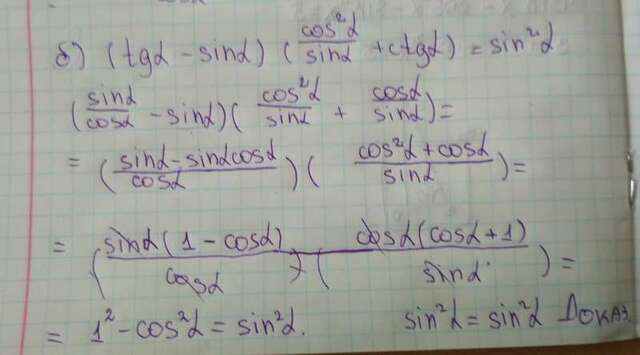 б) (tgα - sinα) (cos²α/sinα + ctgα) = sin²α
(sinα/cosα - sinα)(cos²α/sinα + cosα/sinα)=
= (sinα - sinαcosα/cosα)(cos²α + cosα/sinα)=
= (sinα(1 - cosα)/cosα)·(cosα(cosα + 1)/sinα)=
= 1² - cos²α = sin²α. sin²α = sin²α Доказ